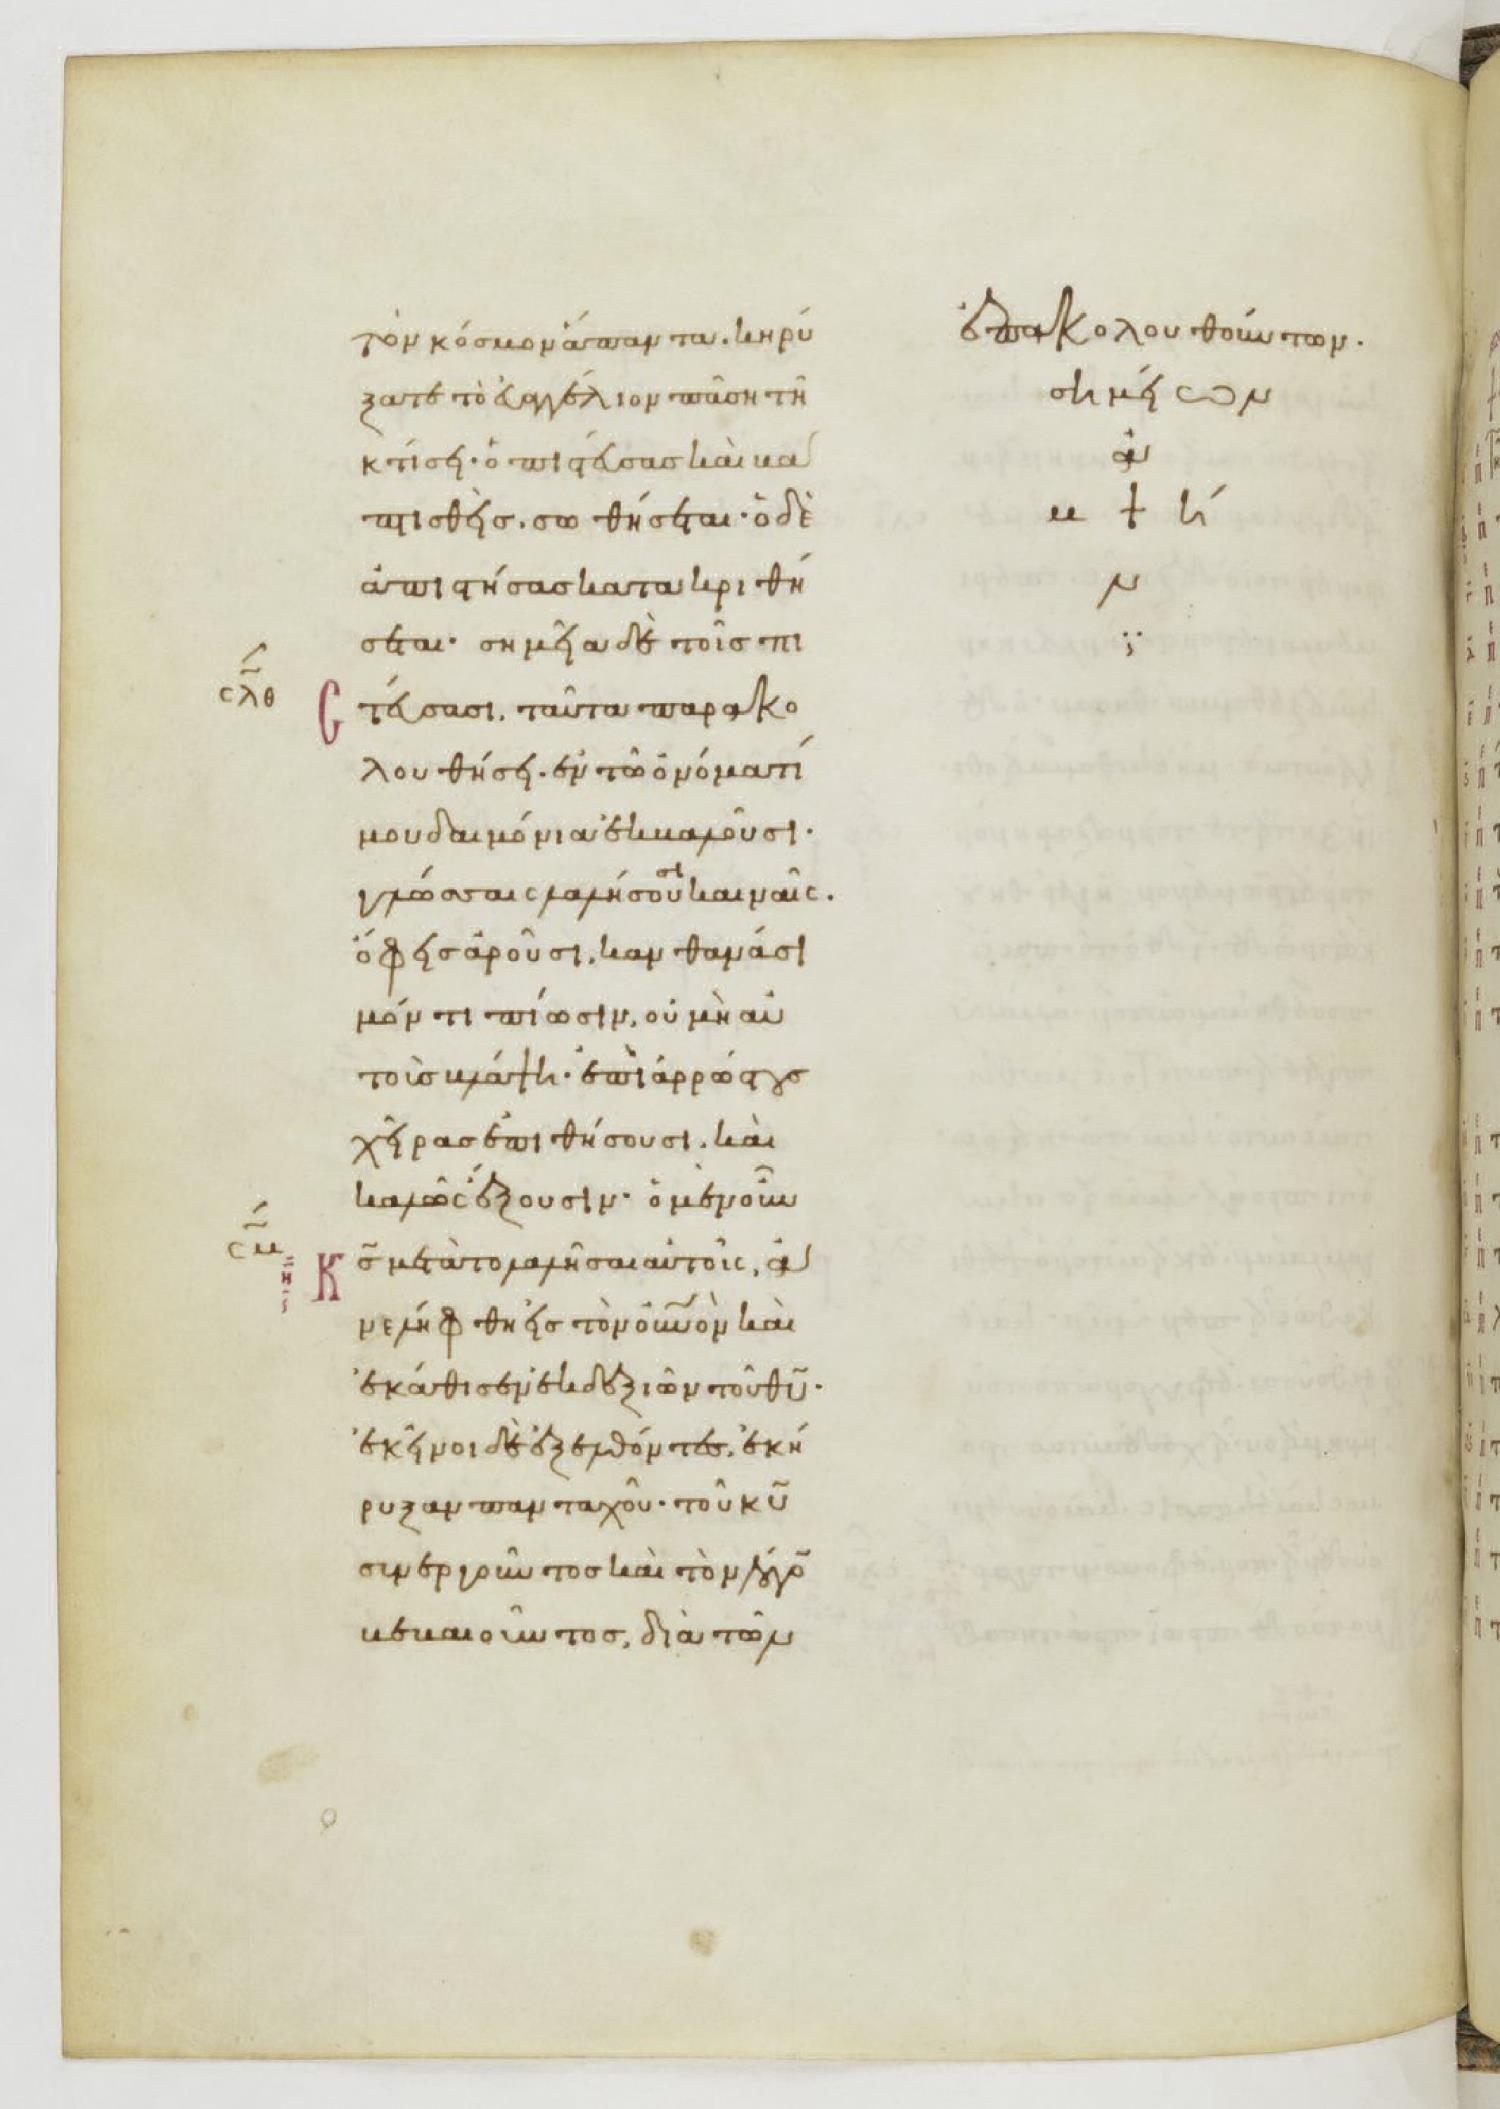 τὸν κόσμον ἅπαντα. κηρύ
ξατε τὸ εὐαγγέλιον πάση τῆ
κτίσει· ὁ πιστεύσας καὶ βα
πτισθεὶς. σωθήσεται· ὁ δὲ
ἀπιστήσας κατακριθή
σεται· σημεῖα δὲ τοῖς πι
σλθ
στεύσασι. ταῦτα παρακο
λουθήσει. ἐν τῶ ὀνόματί
μου δαιμόνια ἐκβαλοῦσι·
γλώσσαις λαλήσουσι καιναῖς.
ὄφεις ἀροῦσι. κἂν θανάσι
μόν τι πίωσιν, οὐ μὴ αὐ
τοὺς βλάψη· ἐπὶ ἀρρώστους
χεῖρας ἐπιθήσουσι. καὶ
καλῶς ἕξουσιν· ὁ μὲν οὖν
σμ
κς μετὰ τὸ λαλῆσαι αὐτοῖς, ἀ
νελήφθη εἰς τὸν οὐνὸν καὶ
ἐκάθισεν ἐκ δεξιῶν τοῦ θυ·
ἐκεῖνοι δὲ ἐξελθόντες, ἐκή
ρυξαν πανταχοῦ· τοῦ κυ
συνεργοῦντος καὶ τὸν λόγον
βεβαιοῦντος, διὰ τῶν
ἐπακολουθούντων.
σημείων
ἀ
μ ή
ν